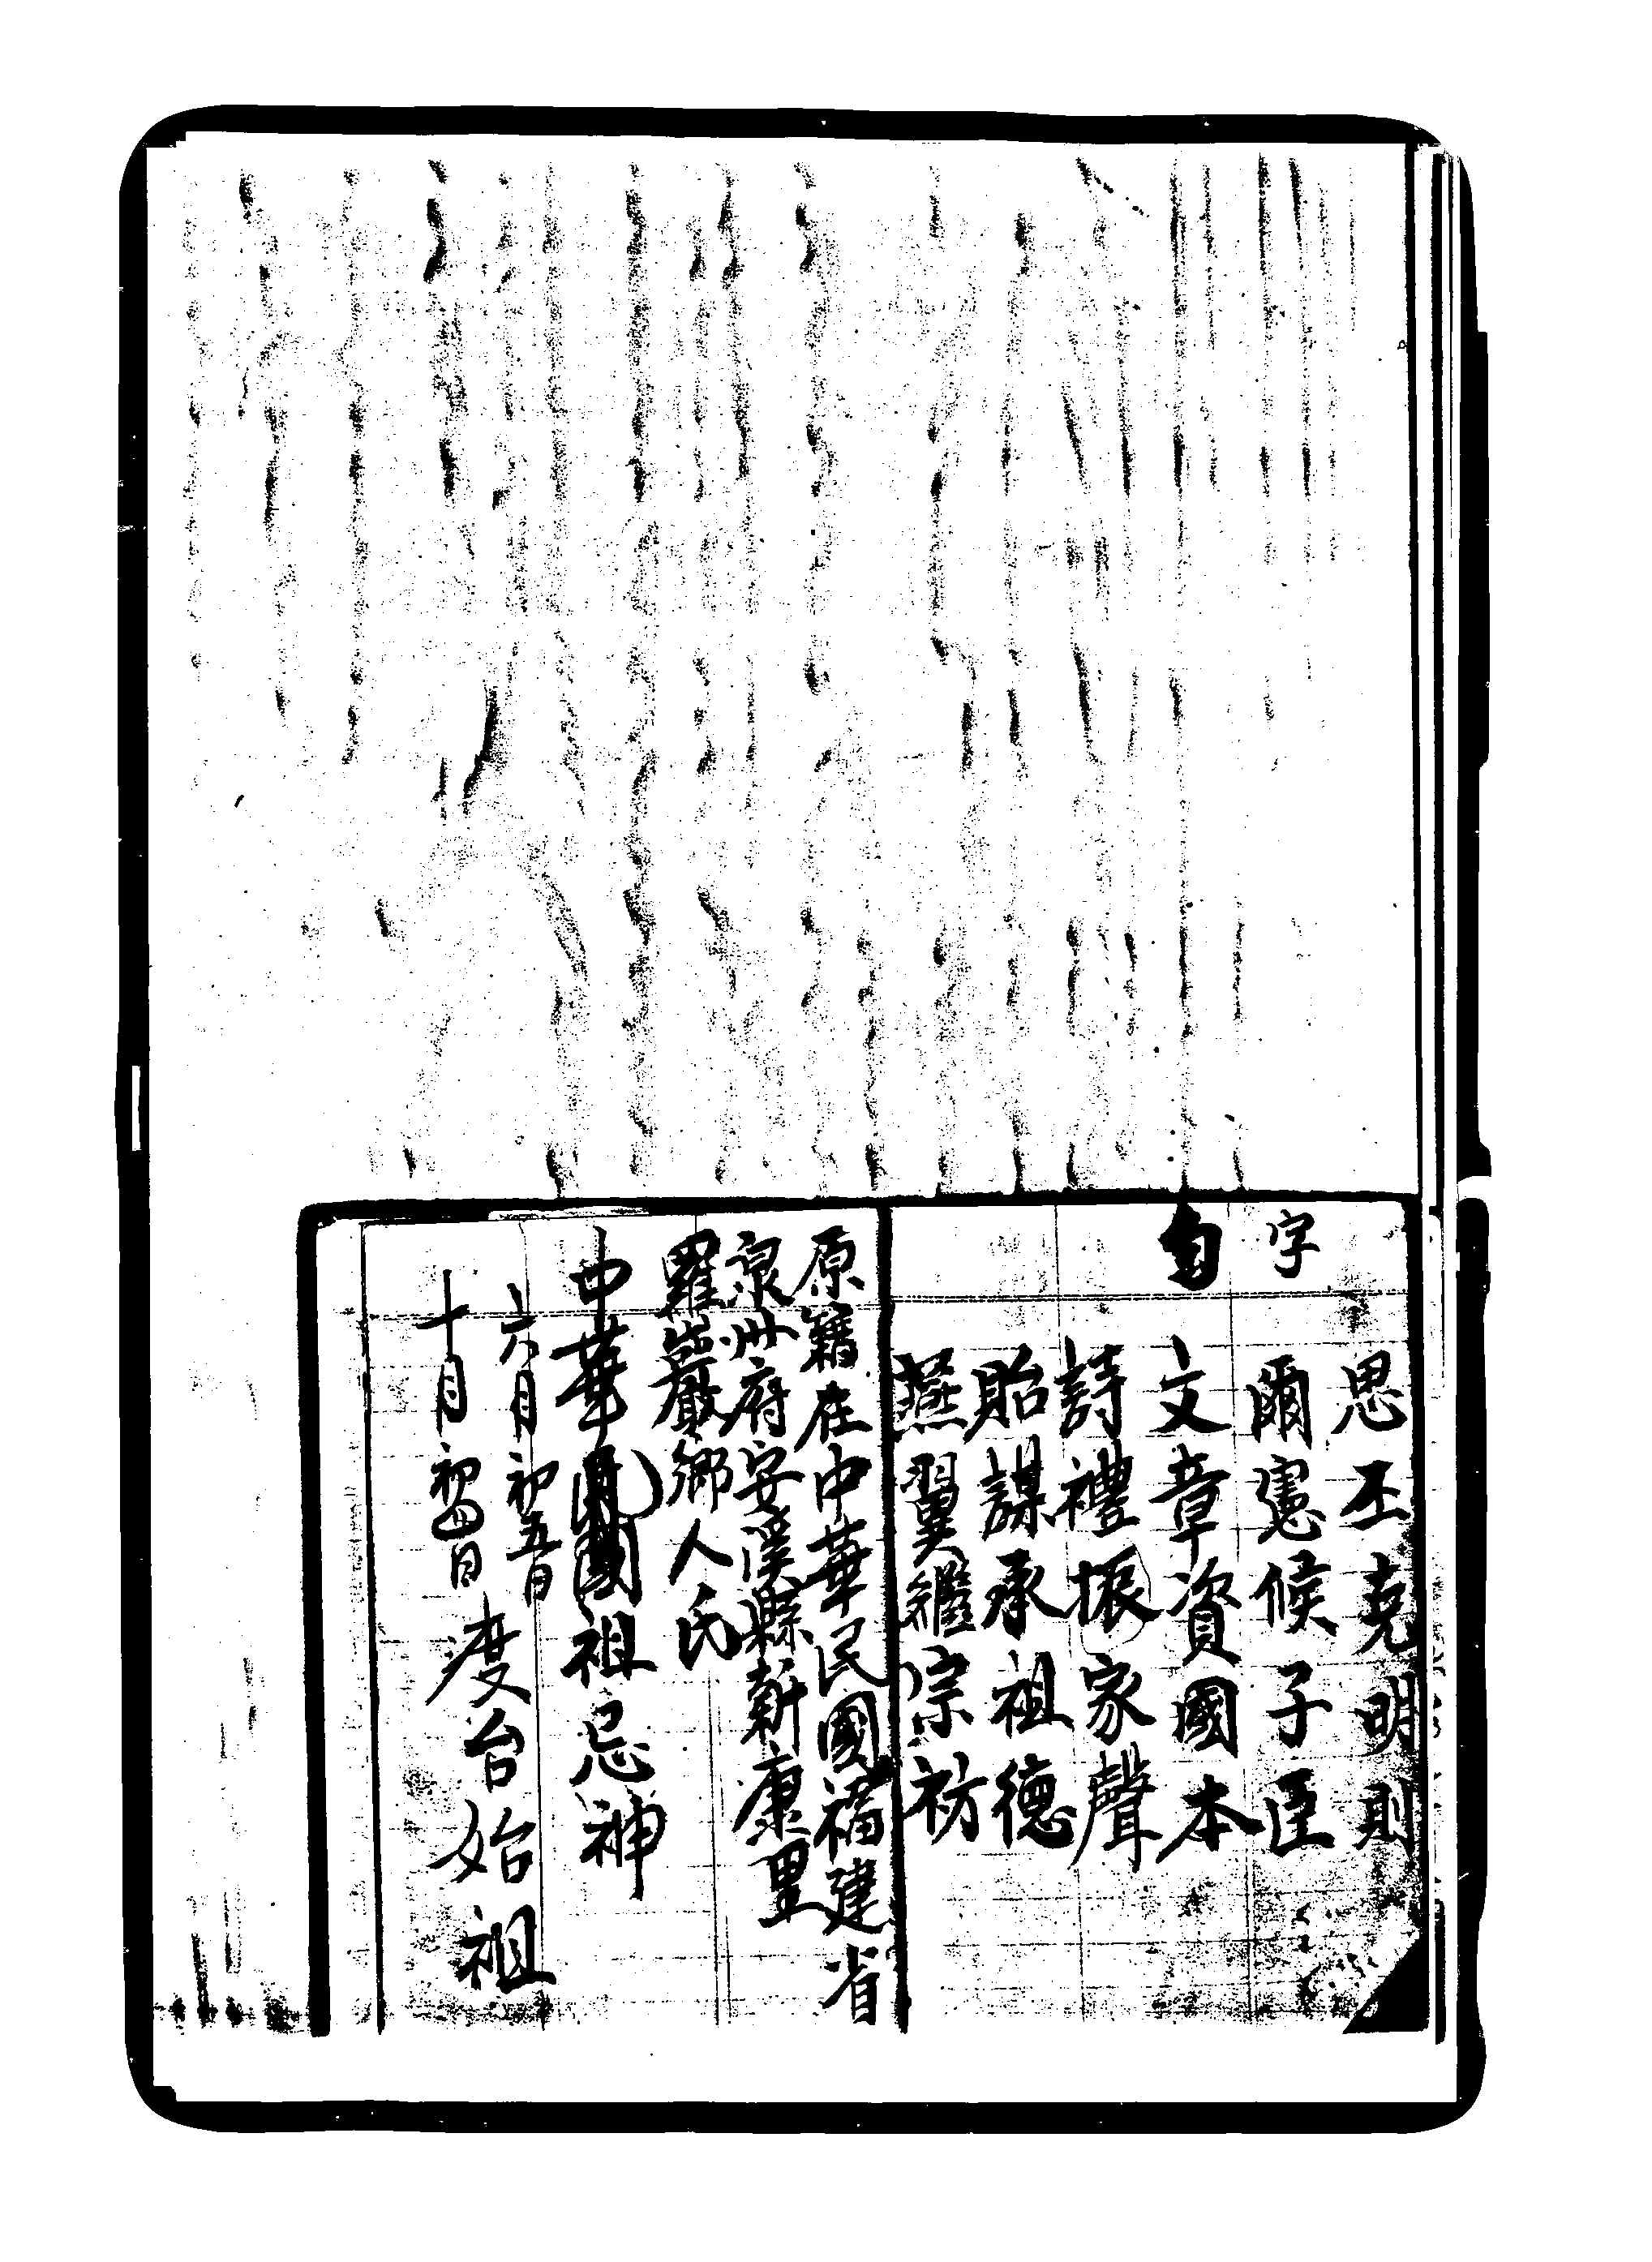 字
勻
思丕克明則
爾憲候子臣
文章資國本
詩禮振家聲
貽謀承祖德
燕翼繼宗祊
原籍在中華民國福建省
泉州府安溪縣新康里
羅巖鄉人氏
中華國祖忌神
六月初五日
十月初四日
渡台始祖